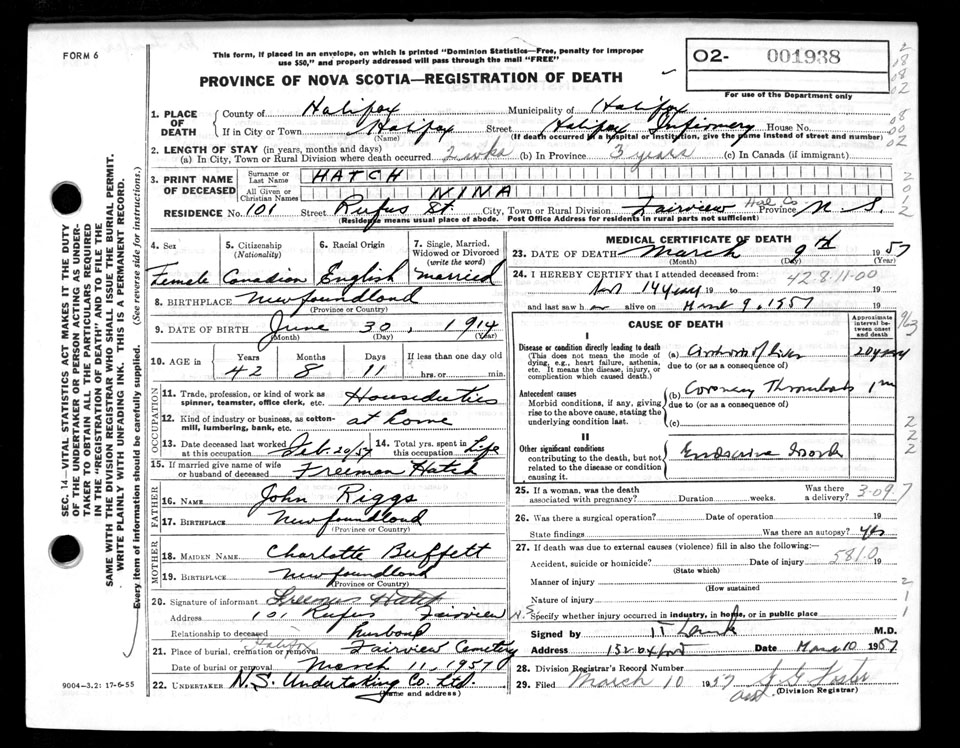 FORM 6
This form, if placed in an envelope, on which is printed "Dominion Statistics—Free, penalty for improper
use $50," and properly addressed will pass through the mail "FREE"
O2- 001938
For use of the Department only
PROVINCE OF NOVA SCOTIA—REGISTRATION OF DEATH
1. PLACE OF DEATH
County of Halifax Municipality of Halifax
If in City or Town Halifax Street Halifax Infirmery House No.
(Name) (If death occurred in a hospital or institution, give the name instead of street and number)
2. LENGTH OF STAY (in years, months and days)
(a) In City, Town or Rural Division where death occurred 2 wks (b) In Province 3 years (c) In Canada (if immigrant)
3. PRINT NAME OF DECEASED
Surname or Last Name HATCH
All Given or Christian Names NINA
RESIDENCE No. 101 Street Rufus St City, Town or Rural Division Fairview Hal Co. Province N. S.
(Residence means usual place of abode. Post Office Address for residents in rural parts not sufficient)
4. Sex Female
5. Citizenship (Nationality) Canadian
6. Racial Origin English
7. Single, Married, Widowed or Divorced (write the word) married
8. BIRTHPLACE Newfoundland
(Province or Country)
9. DATE OF BIRTH June 30, 1914
(Month) (Day) (Year)
10. AGE in Years Months Days If less than one day old
42 8 11 hrs. or min.
OCCUPATION
11. Trade, profession, or kind of work as spinner, teamster, office clerk, etc. Houseduties
12. Kind of industry or business, as cotton-mill, lumbering, bank, etc. at home
13. Date deceased last worked at this occupation Feb. 20/57
14. Total yrs. spent in this occupation Life
15. If married give name of wife or husband of deceased Freeman Hatch
FATHER
16. NAME John Riggs
17. BIRTHPLACE Newfoundland
(Province or Country)
MOTHER
18. MAIDEN NAME Charlotte Buffett
19. BIRTHPLACE Newfoundland
(Province or Country)
20. Signature of informant Freeman Hatch
Address 101 Rufus Fairview N.S.
Relationship to deceased husband
21. Place of burial, cremation or removal Halifax Fairview Cemetery
Date of burial or removal March 11, 1957
22. UNDERTAKER N.S. Undertaking Co. Ltd.
9004—3.2: 17-6-55
MEDICAL CERTIFICATE OF DEATH
23. DATE OF DEATH March 9th 1957
(Month) (Day) (Year)
24. I HEREBY CERTIFY that I attended deceased from: 42 8.11-00
14 years 19 to 19
and last saw h alive on March 9, 1957
CAUSE OF DEATH
Approximate interval between onset and death
I
Disease or condition directly leading to death
(This does not mean the mode of dying, e.g., heart failure, asthenia, etc. It means the disease, injury, or complication which caused death.)
(a) Cirrhosis of Liver 20 years
due to (or as a consequence of)
Antecedent causes
Morbid conditions, if any, giving rise to the above cause, stating the underlying condition last.
(b) Coronary Thrombosis
due to (or as a consequence of)
(c)
II
Other significant conditions contributing to the death, but not related to the disease or condition causing it.
Endocrine
25. If a woman, was the death associated with pregnancy? Duration weeks. Was there a delivery? 3-09.7
26. Was there a surgical operation? Date of operation 19
State findings Was there an autopsy? yes
27. If death was due to external causes (violence) fill in also the following:—
Accident, suicide or homicide? Date of injury 581.0 19
(State which)
Manner of injury
(How sustained
Nature of injury
Specify whether injury occurred in industry, in home, or in public place
Signed by M.D.
Address 152 Oxford Date March 10 1957
28. Division Registrar's Record Number
29. Filed March 10 1957 Foster
(Division Registrar)
SEC. 14—VITAL STATISTICS ACT MAKES IT THE DUTY
OF THE UNDERTAKER OR PERSON ACTING AS UNDER-
TAKER TO OBTAIN ALL THE PARTICULARS REQUIRED
IN THE "REGISTRATION OF DEATH" AND TO FILE THE
SAME WITH THE DIVISION REGISTRAR WHO SHALL ISSUE THE BURIAL PERMIT.
WRITE PLAINLY WITH UNFADING INK. THIS IS A PERMANENT RECORD.
Every item of information should be carefully supplied. (See reverse side for instructions.)